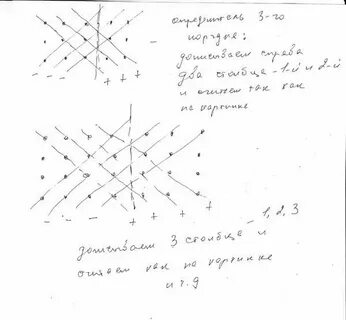 определитель 3-го
порядка:
дописываем справа
два столбца - 1-й и 2-й
и считаем так как
на картинке
- - - + + +
- - - - + + + +
дописываем 3 столбца - 1, 2, 3 и
считаем как на картинке
и т.д